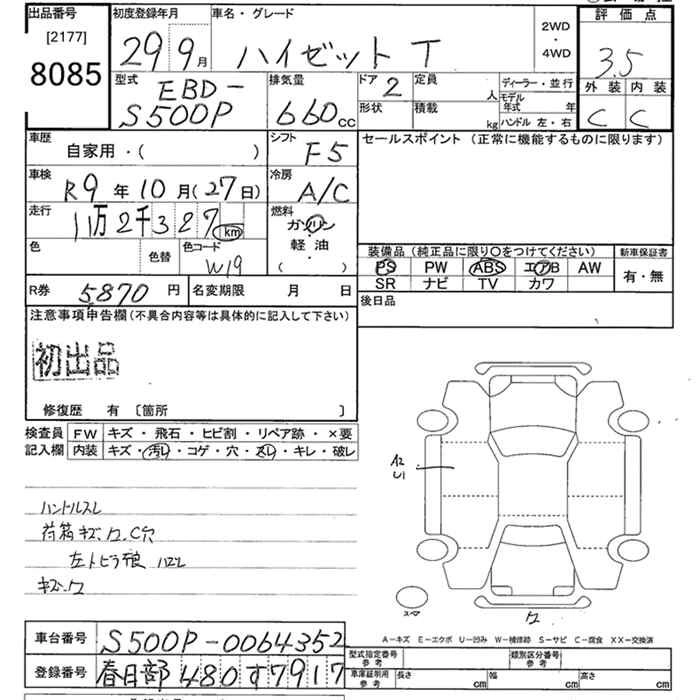 出品番号 初度登録年月 車名・グレード 評価点
[2177] 29 9月 ハイゼット T 2WD・4WD 3.5
8085
型式 EBD-S500P 排気量 660cc ドア 2 定員 人 ディーラー・並行
形状 積載 kg モデル年式 年 ハンドル 左・右
外装 内装
C C
車歴 自家用・( ) シフト F5 セールスポイント (正常に機能するものに限ります)
車検 R9年10月(27日) 冷房 A/C
走行 11万2千327km 燃料 ガソリン・軽油 ( )
色 色替 色コード W19
装備品 (純正品に限り○をつけてください) 新車保証書
PS PW ABS エアB AW 有・無
SR ナビ TV カワ
R券 5870円 名変期限 月 日 後日品
注意事項申告欄(不具合内容等は具体的に記入して下さい)
初出品
修復歴 有 〔箇所 〕
検査員 FW キズ・飛石・ヒビ割・リペア跡・×要
記入欄 内装 キズ・汚レ・コゲ・穴・スレ・キレ・破レ
A2
U1
ハンドルスレ
荷箱キズ、ワ、C穴
左トビラ
キズ、ワ
スマ
ワ
A-キズ E-エクボ U-凹み W-補修跡 S-サビ C-腐食 XX-交換済
車台番号 S500P-0064352
登録番号 春日部 480 す 7917
型式指定番号 参考 類別区分番号 参考
車庫証明用 参考 長さ cm 幅 cm 高さ cm